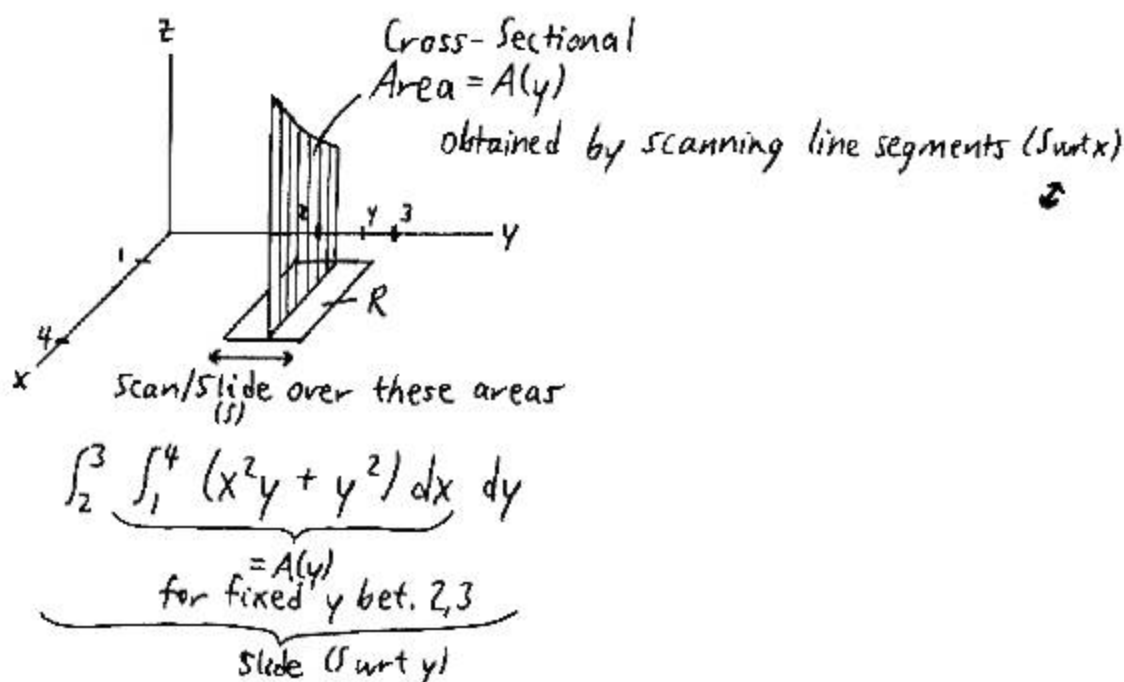 z
Cross-Sectional
Area = A(y)
obtained by scanning line segments (∫ wrt x)
2 y 3 y
1
R
4
x
Scan/Slide over these areas
(∫)
∫₂³ ∫₁⁴ (x²y + y²) dx dy
= A(y)
for fixed y bet. 2,3
Slide (∫ wrt y)